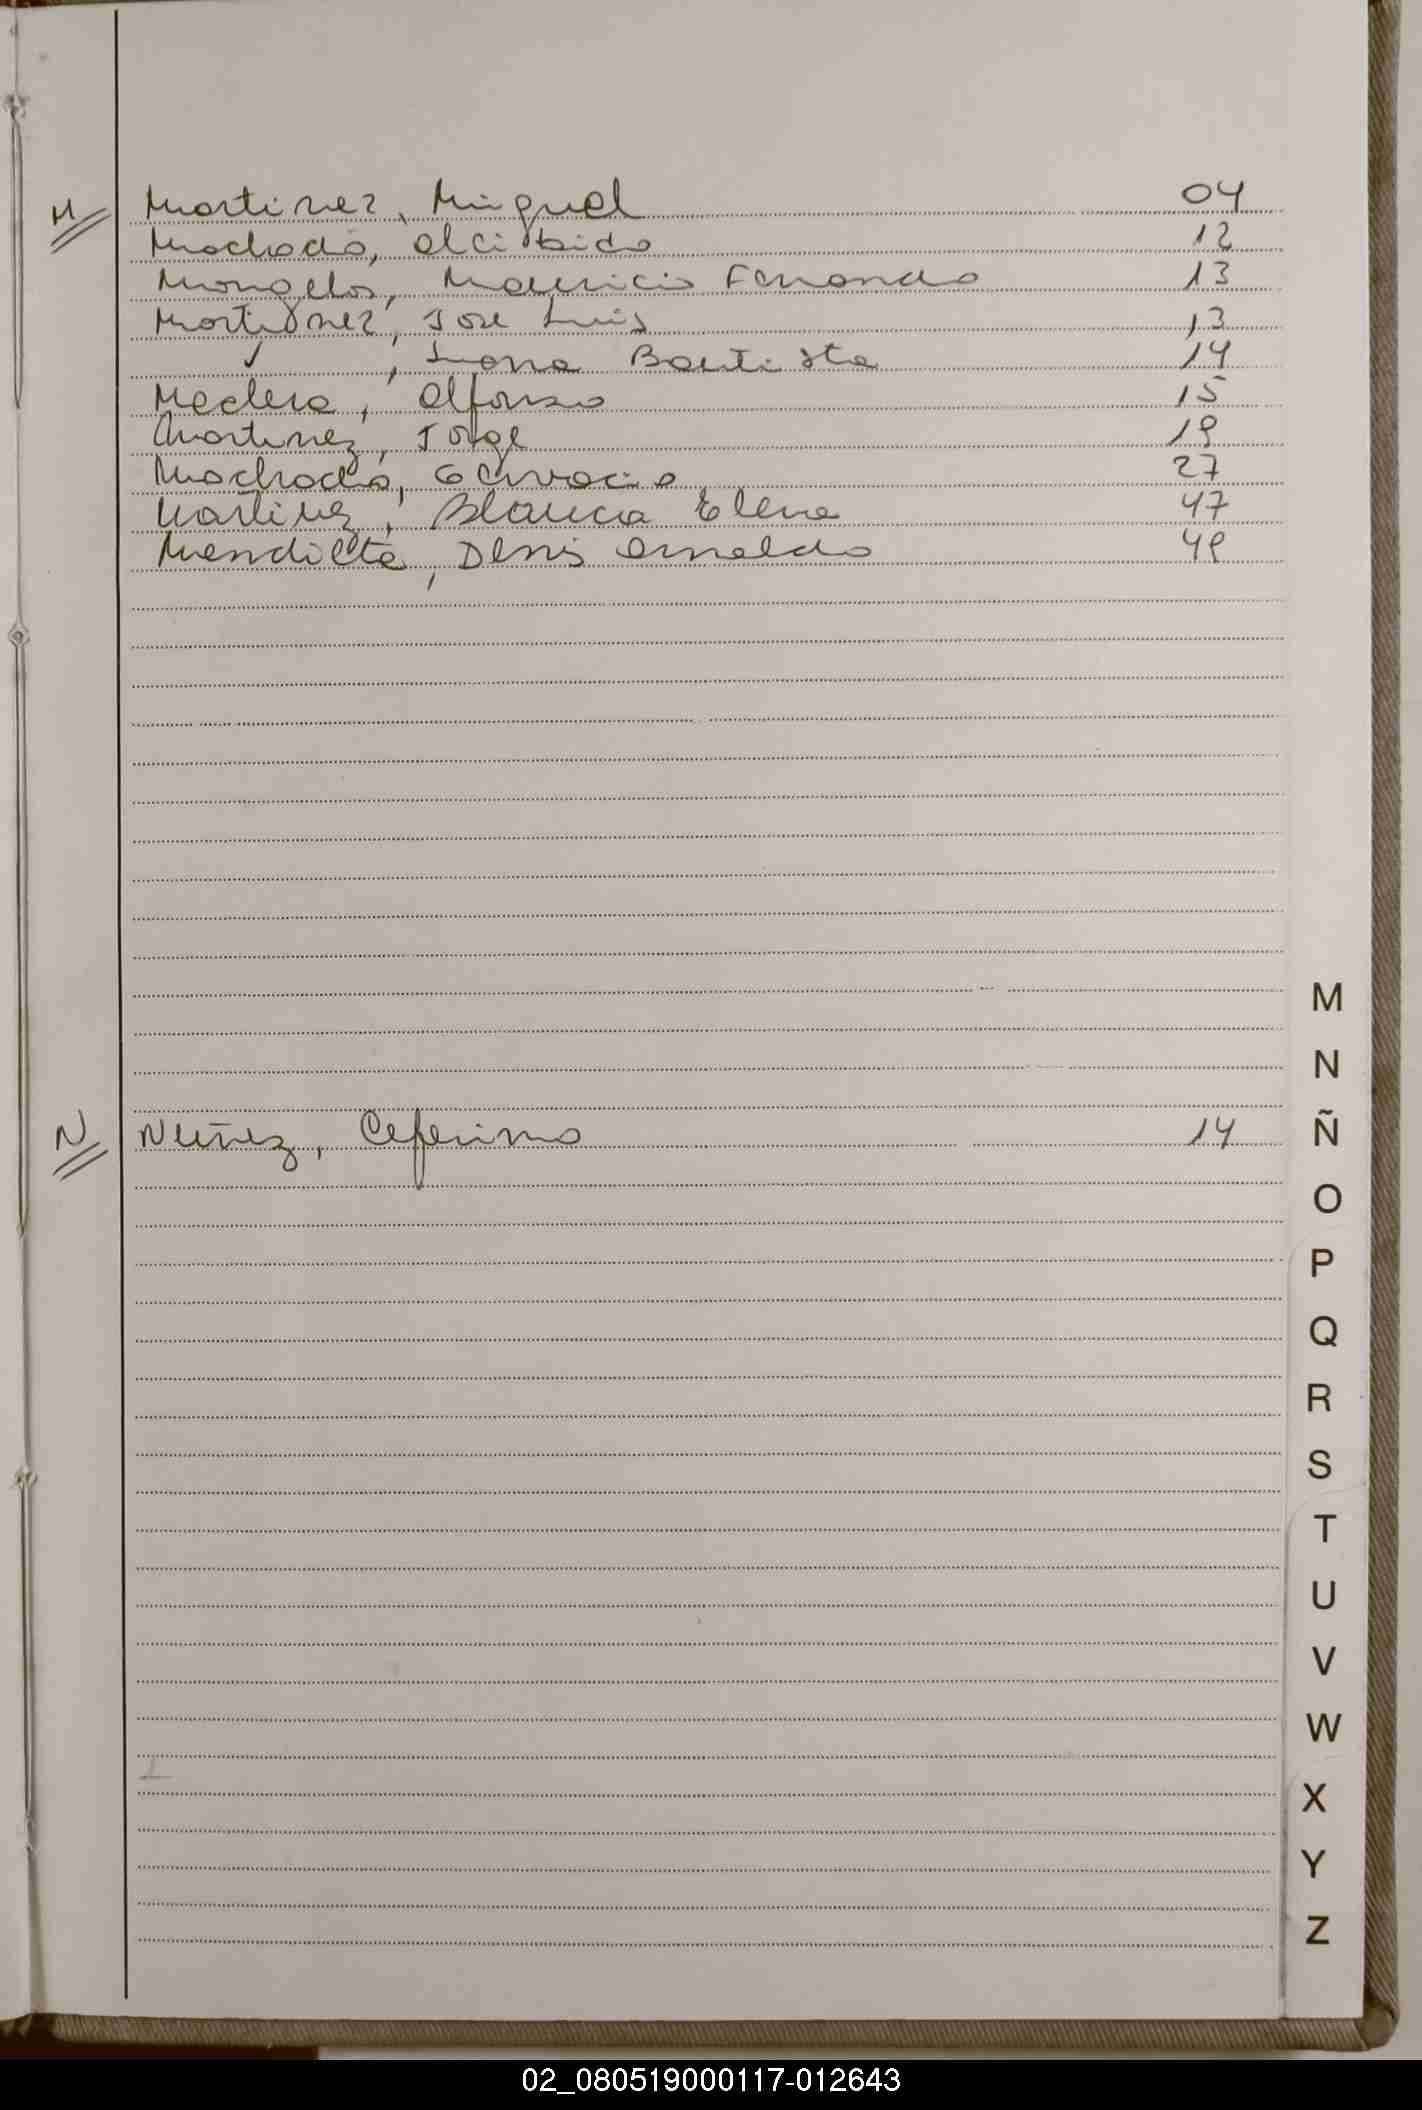 M Martinez, Miguel 04
Machado, Alcibido 12
Mongelos, Mauricio Fernando 13
Martinez, Jose Luis 13
✓, Juana Bautista 14
Meclera, Alfonso 15
Martinez, Jorge 19
Machado, Gervacio 27
Martinez, Blanca Elena 47
Mendieta, Denis Arnaldo 49
M
N
N Nuñez, Ceferino 14
Ñ
O
P
Q
R
S
T
U
V
W
X
Y
Z
02_080519000117-012643